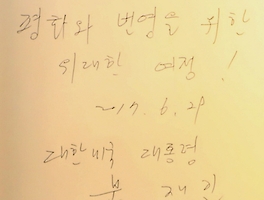 평화와 번영을 위한
위대한 여정!
2017. 6. 29
대한미국 대통령
문 재 인